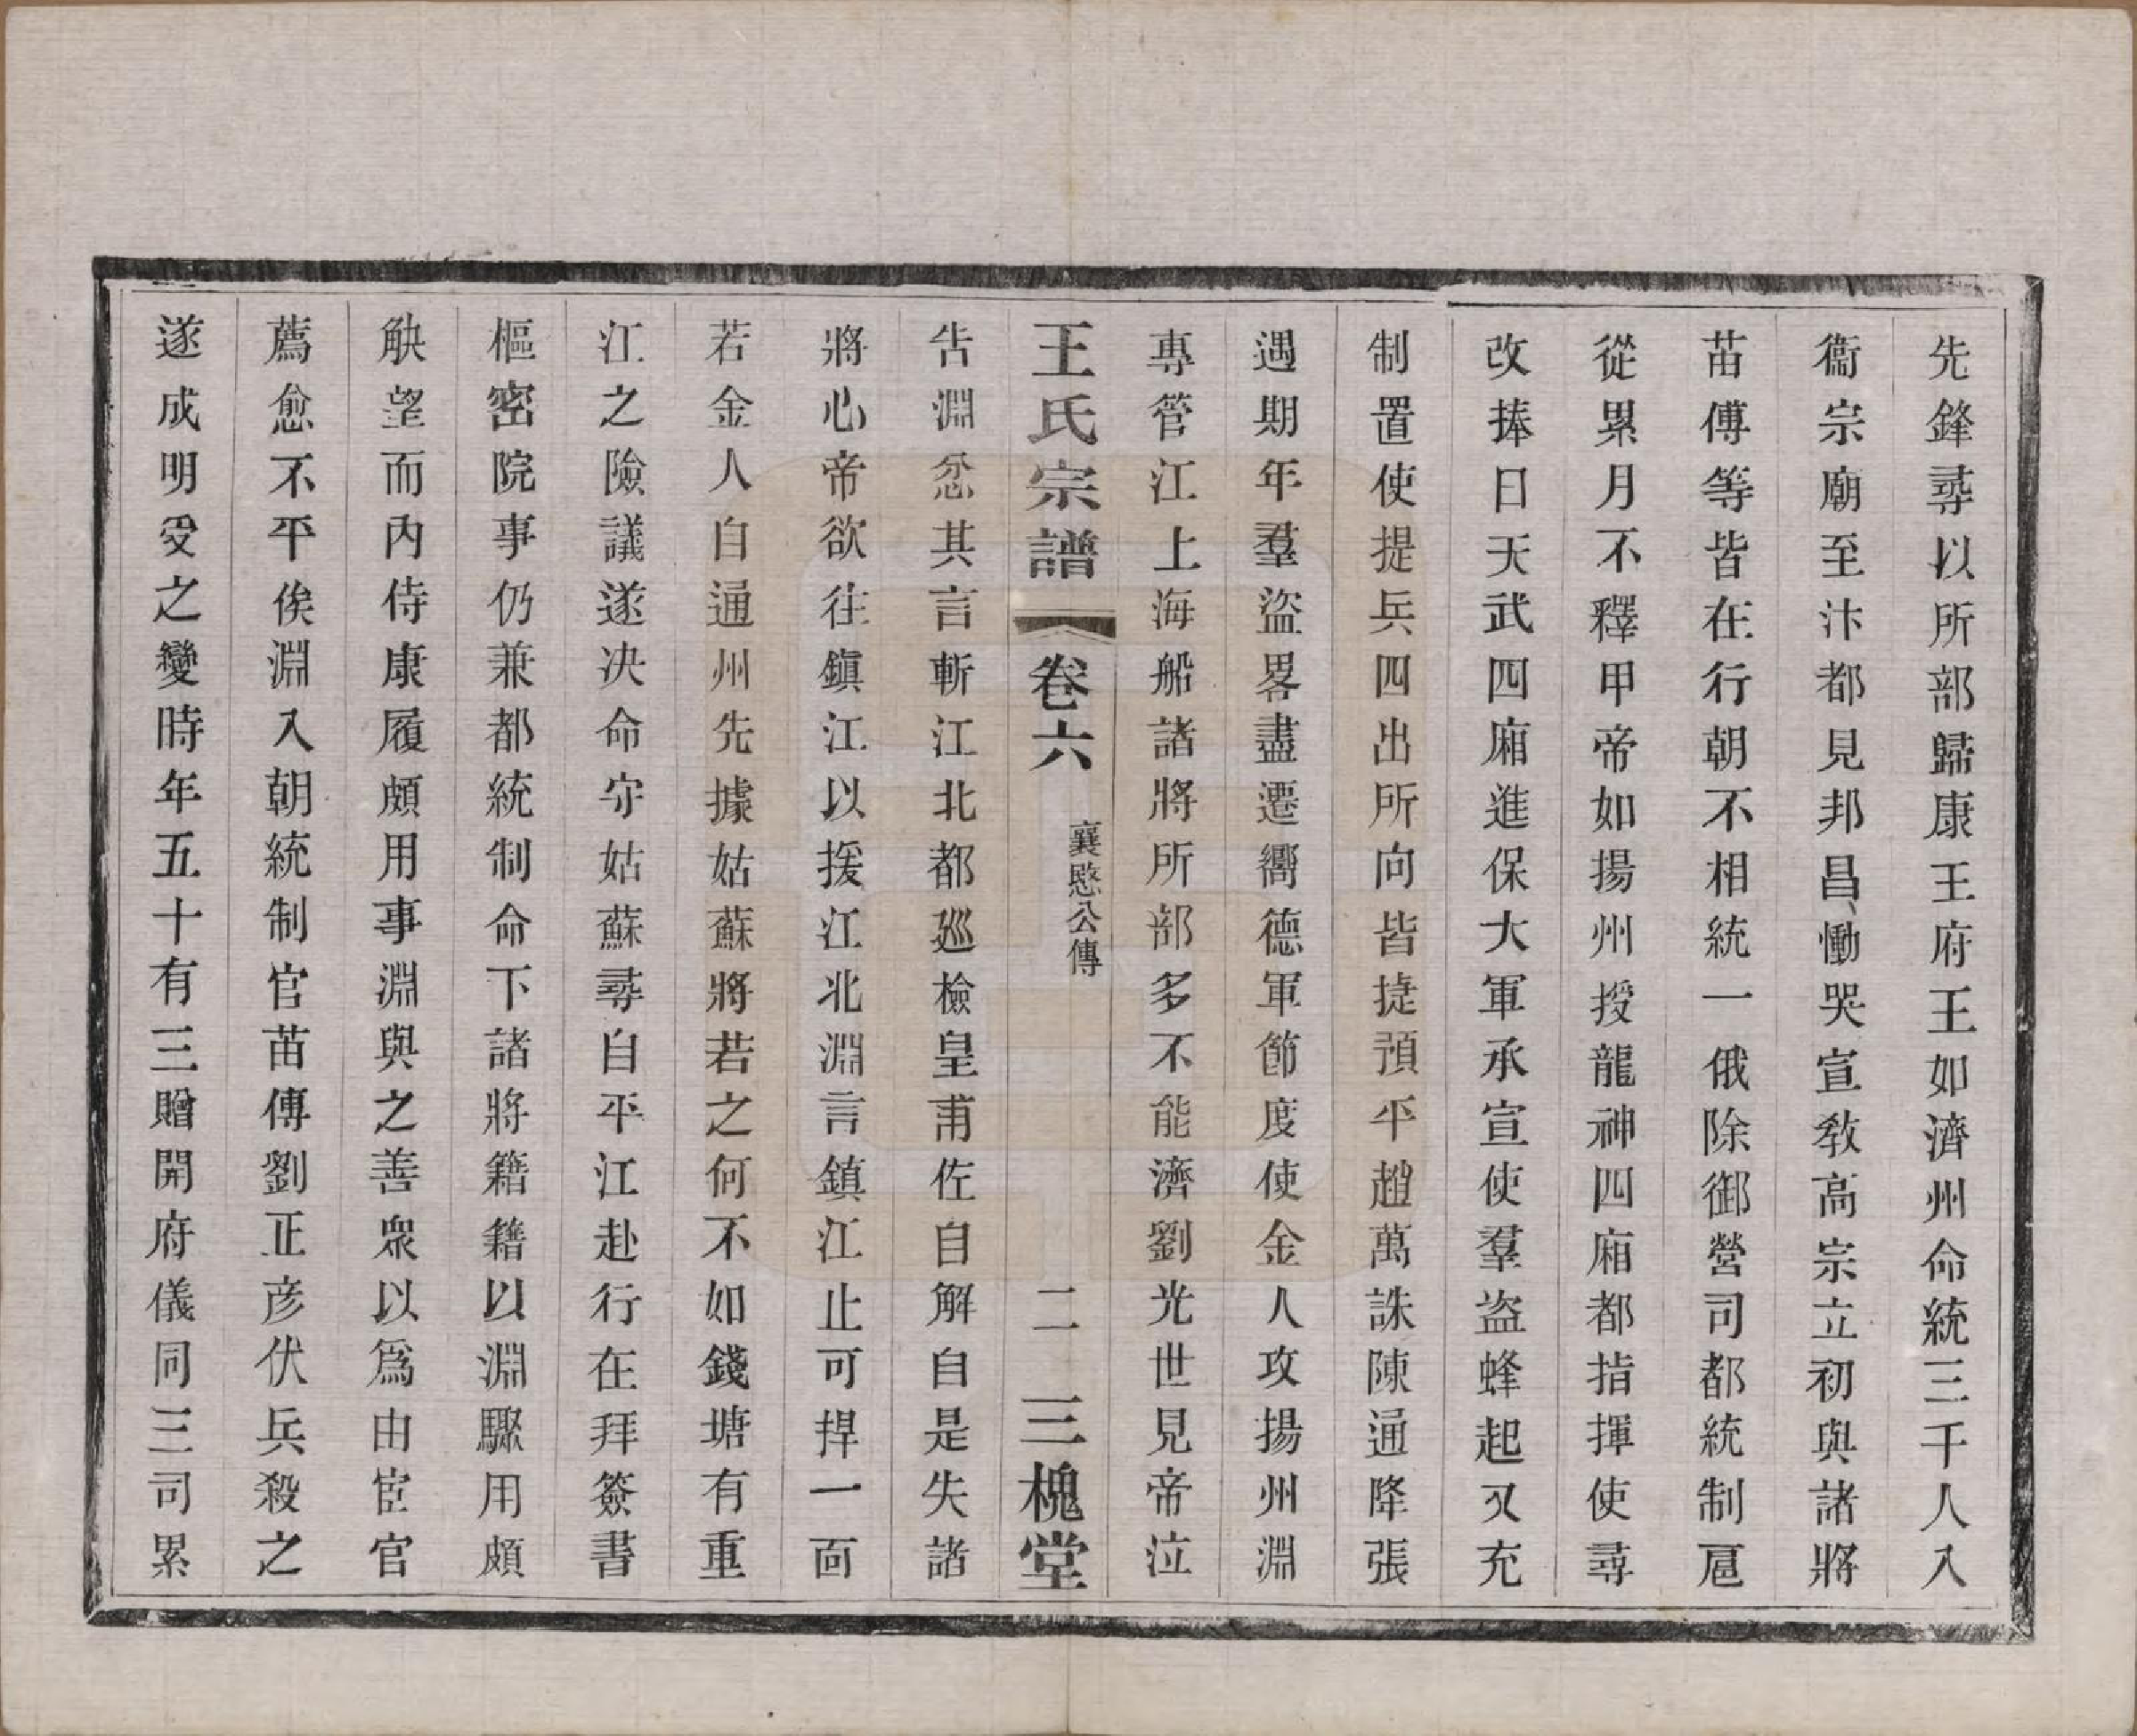 先鋒尋以所部歸康王府王如濟州命統三千人入
衞宗廟至汴都見邦昌慟哭宣教高宗立初與諸將
苗傅等皆在行朝不相統一俄除御營司都統制扈
從累月不釋甲帝如揚州授龍神四廂都指揮使尋
改捧日天武四廂進保大軍承宣使羣盜蜂起又充
制置使提兵四出所向皆捷預平趙萬誅陳通降張
遇期年羣盜畧盡遷嚮德軍節度使金人攻揚州淵
專管江上海船諸將所部多不能濟劉光世見帝泣
王氏宗譜 卷六 襄愍公傳 二 三槐堂
告淵忿其言斬江北都廵檢皇甫佐自解自是失諸
將心帝欲往鎭江以援江北淵言鎮江止可捍一面
若金人自通州先據姑蘇將若之何不如錢塘有重
江之險議遂决命守姑蘇尋自平江赴行在拜簽書
樞密院事仍兼都統制命下諸將籍籍以淵驟用頗
觖望而內侍康履頗用事淵與之善衆以爲由宦官
薦愈不平俟淵入朝統制官苗傅劉正彦伏兵殺之
遂成明受之變時年五十有三贈開府儀同三司累